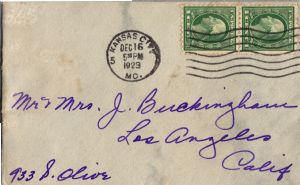 KANSAS CITY
DEC 16
5 PM
1923
MO.
Mr & Mrs. J. Buckingham
Los Angeles
Calif
933 S. Olive